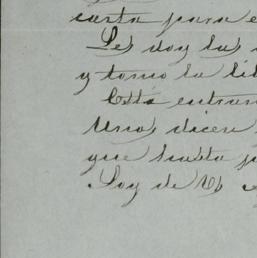 carta para e
Les doy las
y tomo la li
Está entran
Unos dicen
que hasta p
Soy de V